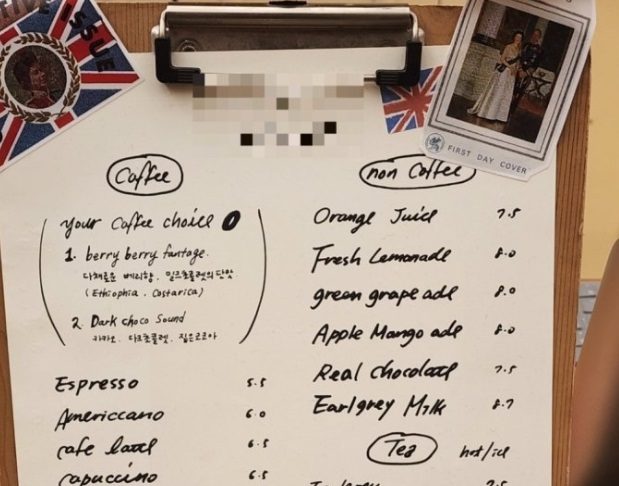 ISSUE
FIRST DAY COVER
Coffee
your Coffee choice
1. berry berry fantage.
다채로운 베리향, 밀크초콜렛의 단맛
(Ethiophia, Costarica)
2. Dark choco Sound
카카오, 다크초콜렛, 짙은코코아
Espresso 5.5
Americcano 6.0
cafe latte 6.5
capuccino 6.5
non Coffee
Orange Juice 7.5
Fresh Lemonade 8.0
green grape ade 8.0
Apple Mango ade 8.0
Real chocolate 7.5
Earlgrey Milk 8.7
Tea hot/ice